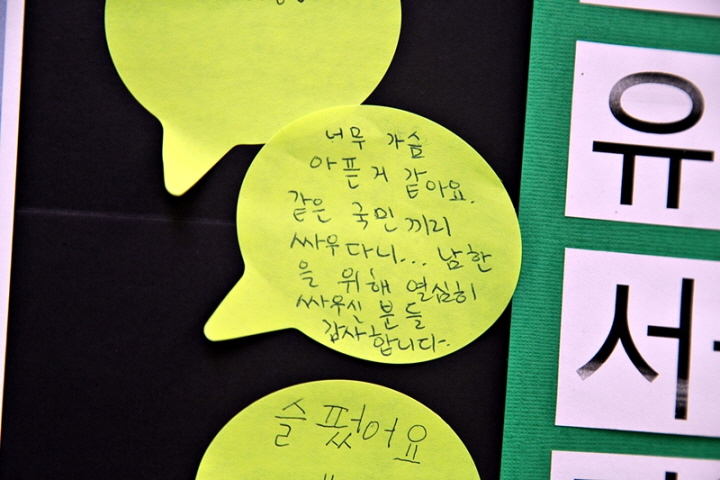 너무 가슴
아픈거 같아요.
같은 국민끼리
싸우다니... 남한
을 위해 열심히
싸우신 분들
감사합니다.
슬펐어요
유
서